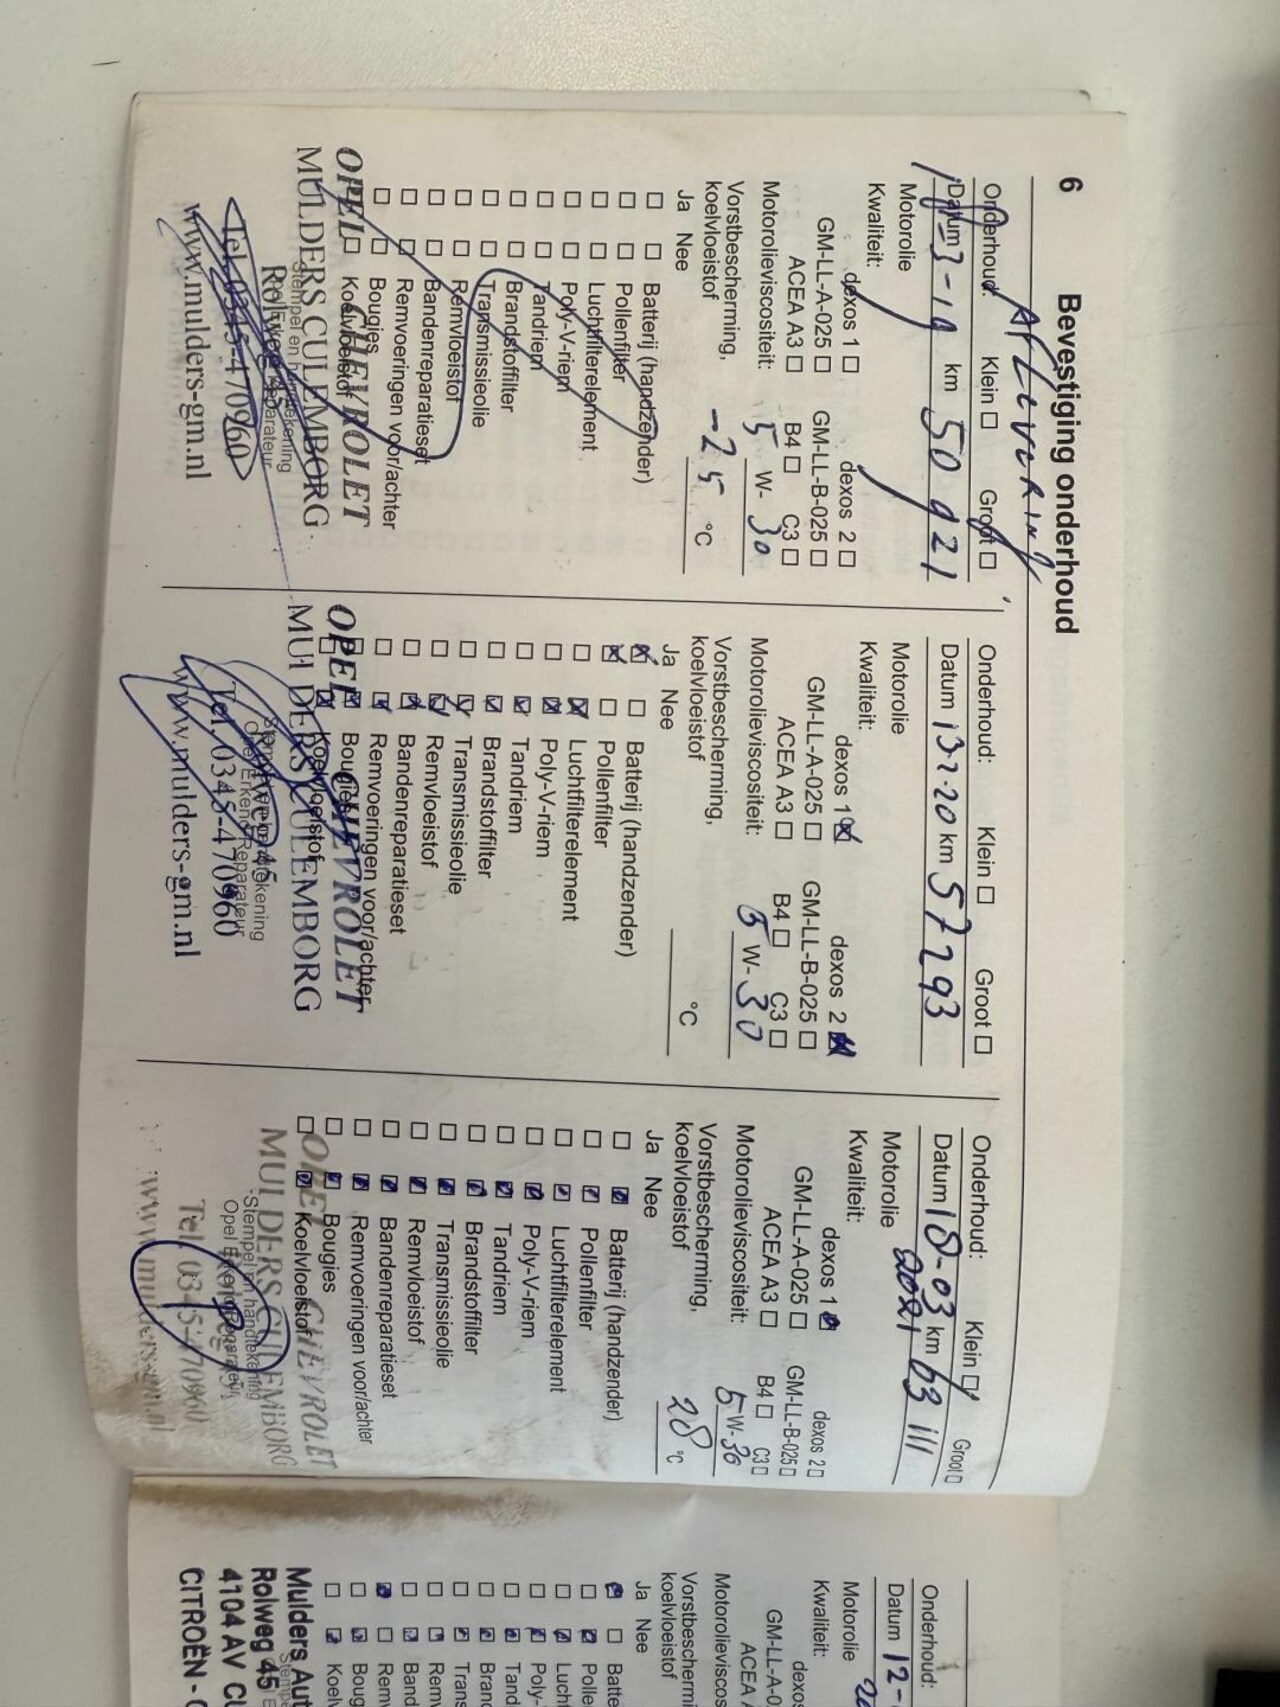 6 Bevestiging onderhoud
Aflevering
Onderhoud: Klein Groot
Datum 1-3-19 km 50 921
Motorolie
Kwaliteit: dexos 1 dexos 2
GM-LL-A-025 GM-LL-B-025
ACEA A3 B4 C3
Motorolieviscositeit: 5 W- 30
Vorstbescherming,
koelvloeistof -25 °C
Ja Nee
Batterij (handzender)
Pollenfilter
Luchtfilterelement
Poly-V-riem
Tandriem
Brandstoffilter
Transmissieolie
Remvloeistof
Bandenreparatieset
Remvoeringen voor/achter
Bougies
Koelvloeistof
OPEL CHEVROLET
MULDERS CULEMBORG
Stempel en handtekening
Opel Erkend Reparateur
Rolweg 45
Tel. 0345-470960
www.mulders-gm.nl
Onderhoud: Klein Groot
Datum 13-2-20 km 57293
Motorolie
Kwaliteit: dexos 1 dexos 2
GM-LL-A-025 GM-LL-B-025
ACEA A3 B4 C3
Motorolieviscositeit: 5 W- 30
Vorstbescherming,
koelvloeistof °C
Ja Nee
Batterij (handzender)
Pollenfilter
Luchtfilterelement
Poly-V-riem
Tandriem
Brandstoffilter
Transmissieolie
Remvloeistof
Bandenreparatieset
Remvoeringen voor/achter
Bougies
Koelvloeistof
OPEL CHEVROLET
MULDERS CULEMBORG
Stempel en handtekening
Opel Erkend Reparateur
Rolweg 45
Tel. 0345-470960
www.mulders-gm.nl
Onderhoud: Klein Groot
Datum 18-03 km 63 111
2021
Motorolie
Kwaliteit: dexos 1 dexos 2
GM-LL-A-025 GM-LL-B-025
ACEA A3 B4 C3
Motorolieviscositeit: 5 W- 30
Vorstbescherming,
koelvloeistof 28 °C
Ja Nee
Batterij (handzender)
Pollenfilter
Luchtfilterelement
Poly-V-riem
Tandriem
Brandstoffilter
Transmissieolie
Remvloeistof
Bandenreparatieset
Remvoeringen voor/achter
Bougies
Koelvloeistof
OPEL CHEVROLET
MULDERS CULEMBORG
Stempel en handtekening
Opel Erkend Reparateur
Tel. 0345-470960
www.mulders-gm.nl
Onderhoud:
Datum 12-
Motorolie 20
Kwaliteit: dexos
GM-LL-A-0
ACEA A
Motorolieviscos
Vorstbeschermi
koelvloeistof
Ja Nee
Batte
Polle
Lucht
Poly-
Tand
Bran
Tran
Rem
Band
Remv
Boug
Koelv
Mulders Aut
Rolweg 45
4104 AV CU
CITROËN - O